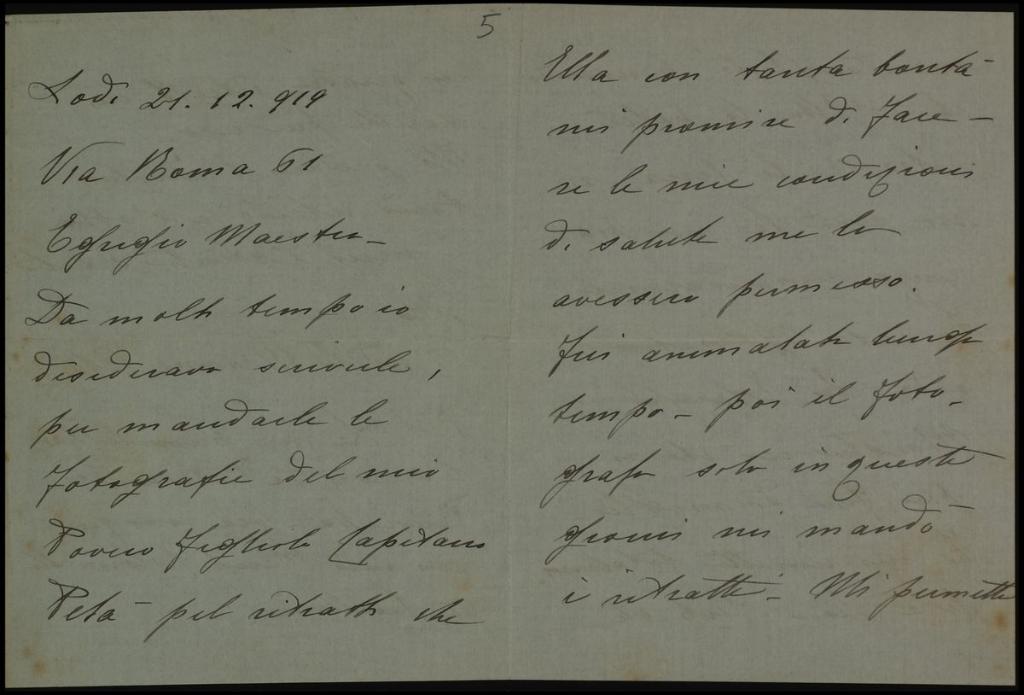 5
Lodi 21. 12. 919
Via Roma 61
Egregio Maestro –
Da molto tempo io
desideravo scriverle,
per mandarle le
fotografie del mio
Povero figliolo Capitano
Petà – pel ritratto che
Ella con tanta bontà
mi promise di fare –
se le mie condizioni
di salute me lo
avessero permesso.
Fui ammalata lungo
tempo – poi il foto-
grafo solo in questi
giorni mi mandò
i ritratti – Mi permetto